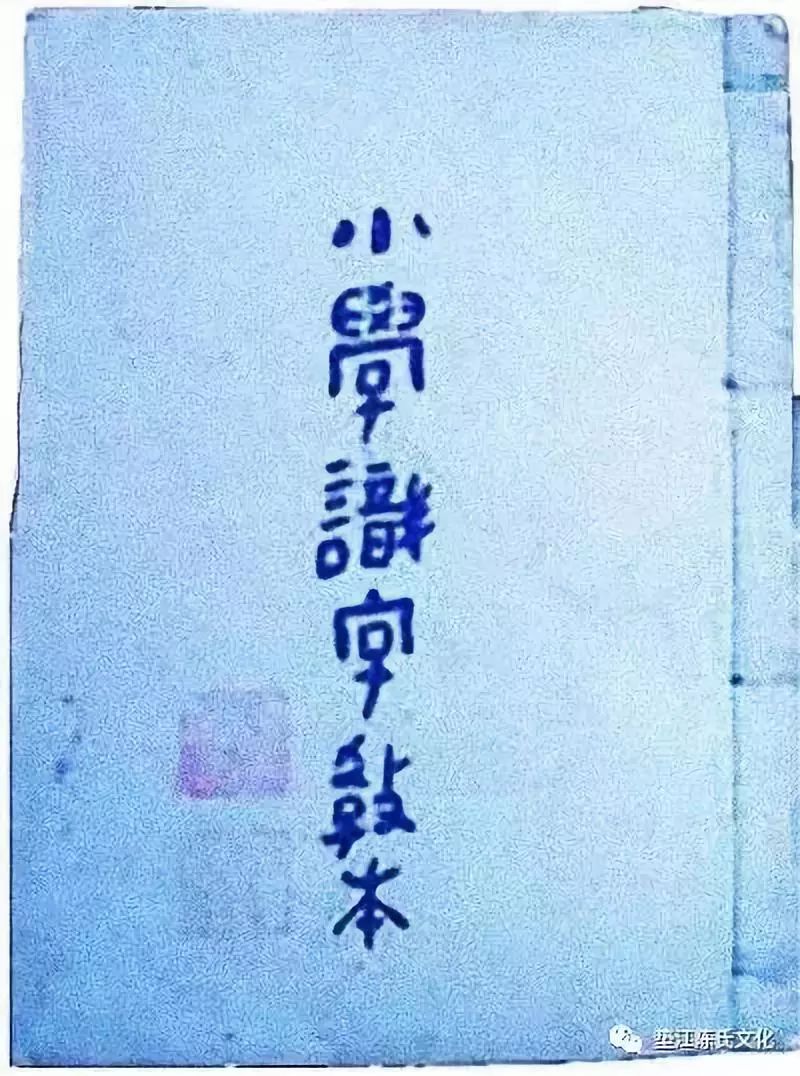 小學識字敎本
垫江陈氏文化